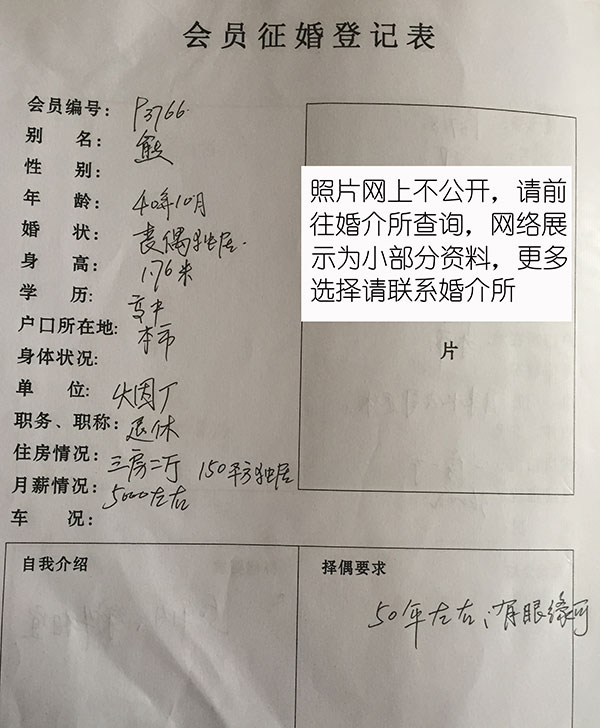 会员征婚登记表
会员编号：P3766
别 名：熊
性 别：
年 龄：40年10月
婚 状：丧偶独居
身 高：1.76米
学 历：高中
户口所在地：本市
身体状况：
单 位：火因厂
职务、职称：退休
住房情况：三房二厅 150平方独居
月薪情况：5000左右
车 况：
照片网上不公开，请前
往婚介所查询，网络展
示为小部分资料，更多
选择请联系婚介所
片
自我介绍
择偶要求
50年左右；有眼缘可